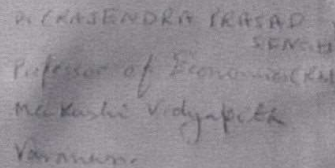 Dr. (RAJENDRA PRASAD
SINGH
Professor of Economics
Kashi Vidyapith
Varanasi.